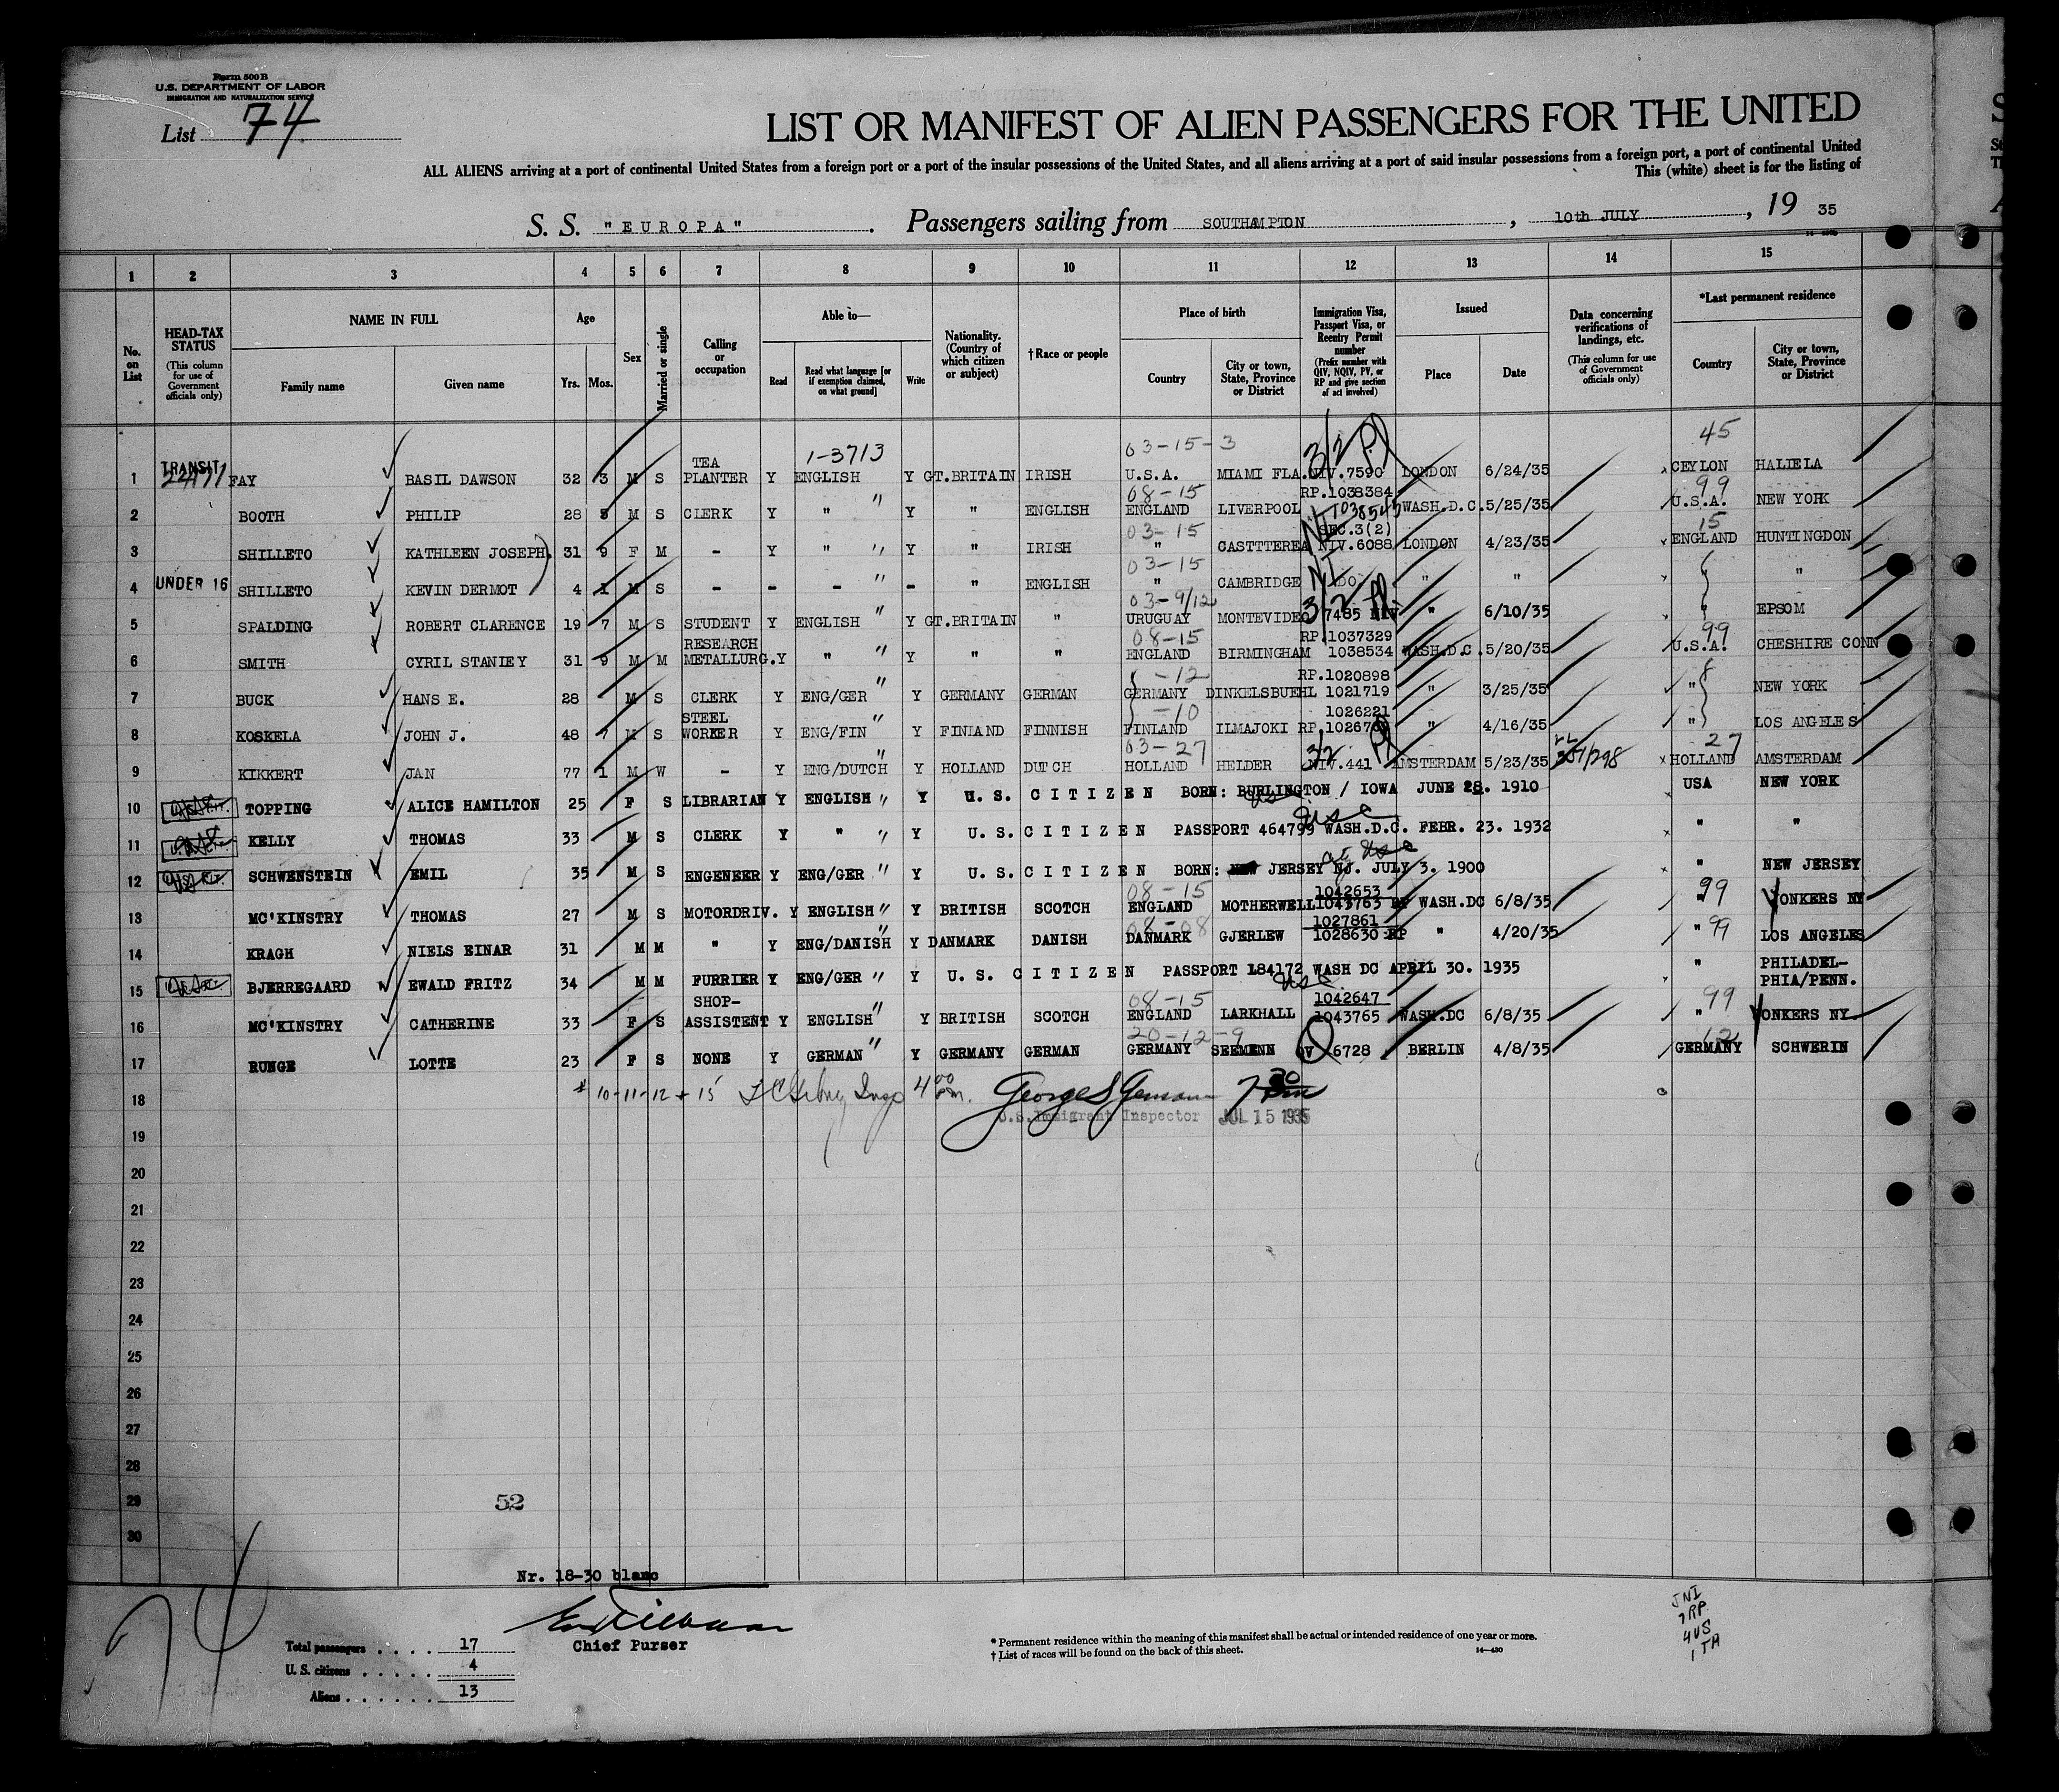 Form 500 B
U.S. DEPARTMENT OF LABOR
IMMIGRATION AND NATURALIZATION SERVICE
List 74
LIST OR MANIFEST OF ALIEN PASSENGERS FOR THE UNITED
ALL ALIENS arriving at a port of continental United States from a foreign port or a port of the insular possessions of the United States, and all aliens arriving at a port of said insular possessions from a foreign port, a port of continental United
This (white) sheet is for the listing of
S. S. "EUROPA". Passengers sailing from SOUTHAMPTON, 10th JULY, 19 35
1 2 3 4 5 6 7 8 9 10 11 12 13 14 15
No. on List
HEAD-TAX STATUS (This column for use of Government officials only)
NAME IN FULL
Family name Given name
Age
Yrs. Mos.
Sex
Married or single
Calling or occupation
Able to—
Read Read what language [or if exemption claimed, on what ground] Write
Nationality. (Country of which citizen or subject)
†Race or people
Place of birth
Country City or town, State, Province or District
Immigration Visa, Passport Visa, or Reentry Permit number (Prefix number with QIV, NQIV, PV, or RP and give section of act involved)
Issued
Place Date
Data concerning verifications of landings, etc. (This column for use of Government officials only)
*Last permanent residence
Country City or town, State, Province or District
1-3713 03-15-3 3/2 45
1 TRANSIT FAY BASIL DAWSON 32 3 M S TEA PLANTER Y ENGLISH Y GT.BRITAIN IRISH U.S.A. MIAMI FLA. NIV.7590 LONDON 6/24/35 CEYLON HALIELA
08-15 99
2 BOOTH PHILIP 28 5 M S CLERK Y " " Y " ENGLISH ENGLAND LIVERPOOL RP.1038384 WASH.D.C. 5/25/35 U.S.A. NEW YORK
03-15 15
3 SHILLETO KATHLEEN JOSEPH. 31 9 F M - Y " " Y " IRISH " CASTTTEREA SEC.3(2) NIV.6088 LONDON 4/23/35 ENGLAND HUNTINGDON
03-15
4 UNDER 16 SHILLETO KEVIN DERMOT 4 1 M S - - - " - " ENGLISH " CAMBRIDGE DO. " " " "
03-9/12 3/2
5 SPALDING ROBERT CLARENCE 19 7 M S STUDENT Y ENGLISH " Y GT.BRITAIN " URUGUAY MONTEVIDEO 7485 NIV " 6/10/35 " EPSOM
08-15 99
6 SMITH CYRIL STANIEY 31 9 M M RESEARCH METALLURG. Y " " Y " " ENGLAND BIRMINGHAM RP.1037329 1038534 WASH.D.C. 5/20/35 U.S.A. CHESHIRE CONN
-12
7 BUCK HANS E. 28 M S CLERK Y ENG/GER " Y GERMANY GERMAN GERMANY DINKELSBUEHL RP.1020898 1021719 " 3/25/35 " NEW YORK
-10
8 KOSKELA JOHN J. 48 7 M S STEEL WORKER Y ENG/FIN " Y FINIAND FINNISH FINLAND ILMAJOKI 1026221 " 4/16/35 " LOS ANGELES
03-27 3/2 27
9 KIKKERT JAN 77 1 M W - Y ENG/DUTCH " Y HOLLAND DUTCH HOLLAND HELDER NIV.441 AMSTERDAM 5/23/35 HOLLAND AMSTERDAM
10 TOPPING ALICE HAMILTON 25 F S LIBRARIAN Y ENGLISH " Y U. S. CITIZEN BORN: BURLINGTON / IOWA JUNE 28. 1910 USA NEW YORK
11 KELLY THOMAS 33 M S CLERK Y " " Y U. S. CITIZEN PASSPORT 464799 WASH.D.C. FEBR. 23. 1932 " "
12 SCHWENSTEIN EMIL 35 M S ENGENEER Y ENG/GER " Y U. S. CITIZEN BORN: NEW JERSEY NJ. JULY 3. 1900 " NEW JERSEY
08-15 99
13 MC'KINSTRY THOMAS 27 M S MOTORDRIV. Y ENGLISH " Y BRITISH SCOTCH ENGLAND MOTHERWELL 1042653 1043763 RP WASH.DC 6/8/35 YONKERS NY
08-08
14 KRAGH NIELS EINAR 31 M M " Y ENG/DANISH " Y DANMARK DANISH DANMARK GJERLEW 1027861 1028630 RP " 4/20/35 " 99 LOS ANGELES
15 BJERREGAARD EWALD FRITZ 34 M M FURRIER Y ENG/GER " Y U. S. CITIZEN PASSPORT 184172 WASH DC APRIL 30. 1935 " PHILADEL- PHIA/PENN.
08-15 99
16 MC'KINSTRY CATHERINE 33 F S SHOP- ASSISTENT Y ENGLISH " Y BRITISH SCOTCH ENGLAND LARKHALL 1042647 1043765 WASH.DC 6/8/35 " YONKERS NY
20-12-9 12
17 RUNGE LOTTE 23 F S NONE Y GERMAN " Y GERMANY GERMAN GERMANY QV 6728 BERLIN 4/8/35 GERMANY SCHWERIN
18 # 10-11-12 + 15 4 00 pm. George S 7 30 pm
U.S. Immigrant Inspector JUL 15 1935
19
20
21
22
23
24
25
26
27
28
29 52
30
Nr. 18-30 blanc
Chief Purser
74
Total passengers . . . . 17
U. S. citizens . . . . . 4
Aliens . . . . . . 13
* Permanent residence within the meaning of this manifest shall be actual or intended residence of one year or more.
† List of races will be found on the back of this sheet.
14—430
7RP
4US